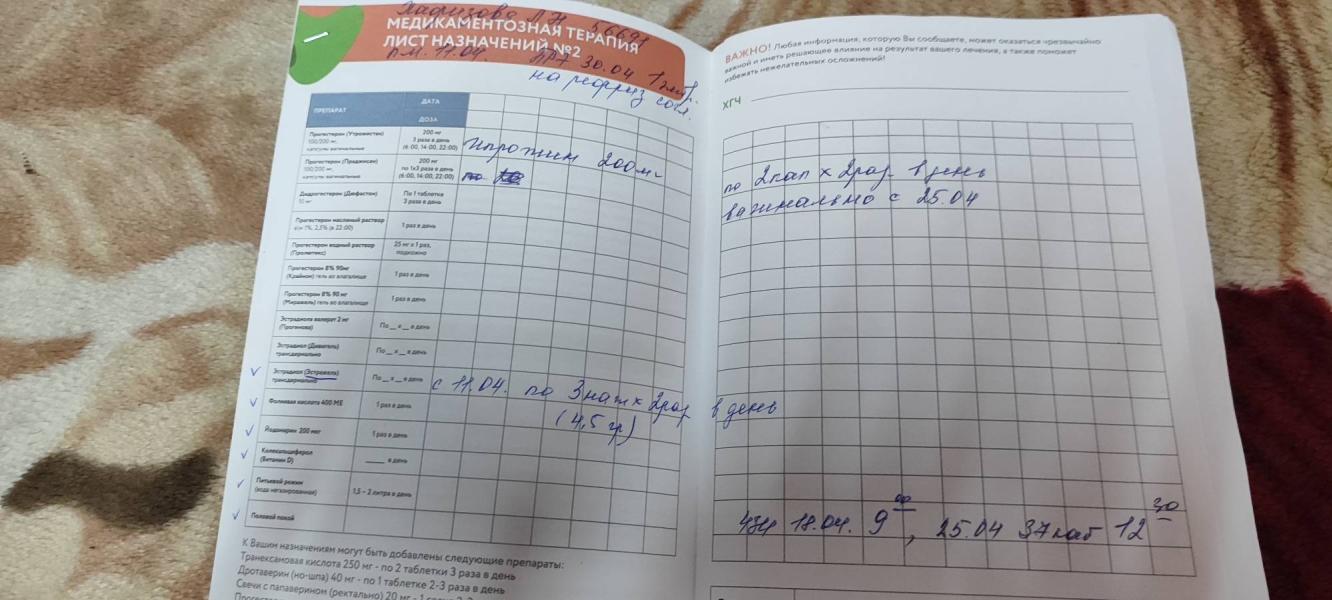 Хафизова Л.Н 56691
МЕДИКАМЕНТОЗНАЯ ТЕРАПИЯ
ЛИСТ НАЗНАЧЕНИЙ №2
п.м. 11.04. 30.04
на согл.
ПРЕПАРАТ
ДАТА
ДОЗА
Прогестерон (Утрожестан)
100/200 мг,
капсулы вагинальные
200 мг
3 раза в день
(6:00, 14:00, 22:00)
Ипрожин 200мг
Прогестерон (Праджисан)
100/200 мг,
капсулы вагинальные
200 мг
по 1х3 раза в день
(6:00, 14:00, 22:00)
Дидрогестерон (Дюфастон)
10 мг
По 1 таблетке
3 раза в день
Прогестерон масляный раствор
в/м 1%, 2,5% (в 22:00)
1 раз в день
Прогестерон водный раствор
(Пролютекс)
25 мг х 1 раз,
подкожно
Прогестерон 8% 90мг
(Крайнон) гель во влагалище
1 раз в день
Прогестерон 8% 90 мг
(Миражель) гель во влагалище
1 раз в день
Эстрадиола валерат 2 мг
(Прогинова)
По __ х __ в день
Эстрадиол (Дивигель)
трансдермально
По __ х __ в день
Эстрадиол (Эстрожель)
трансдермально
По __ х __ в день
с 11.04. по 3 наж х 2раз в день
(4,5 гр)
Фолиевая кислота 400 МЕ
1 раз в день
Йодомарин 200 мкг
1 раз в день
Колекальциферол
(Витамин D)
____ в день
Питьевой режим
(вода негазированная)
1,5 – 2 литра в день
Половой покой
К Вашим назначениям могут быть добавлены следующие препараты:
Транексамовая кислота 250 мг - по 2 таблетки 3 раза в день
Дротаверин (но-шпа) 40 мг - по 1 таблетке 2-3 раза в день
Свечи с папаверином (ректально) 20 мг - 1 свеча
ВАЖНО! Любая информация, которую Вы сообщаете, может оказаться чрезвычайно
важной и иметь решающее влияние на результат вашего лечения, а также поможет
избежать нежелательных осложнений!
ХГЧ
по 2кап х 2раз в день
вагинально с 25.04
УЗИ 18.04. 9 00, 25.04 37 каб 12 30